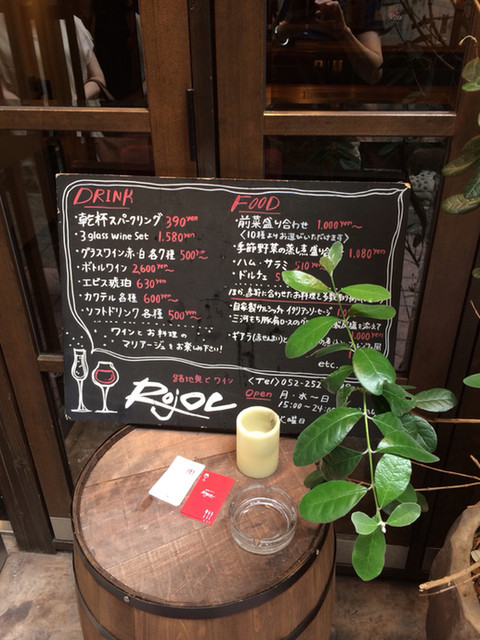 DRINK
・乾杯スパークリング 390yen
・3 glass wine Set 1.580yen
・グラスワイン赤・白 各7種 500yen〜
・ボトルワイン 2,600yen〜
・エビス琥珀 630yen
・カクテル各種 600yen〜
・ソフトドリンク各種 500yen〜
ワインとお料理の
マリアージュをお楽しみ下さい!
FOOD
・前菜盛り合わせ 1.000yen〜
〈10種よりお選びいただけます〉
・季節野菜の蒸し煮盛り 1.080yen
・ハム・サラミ 510yen
・ドルチェ
ほか、季節に合わせたお料理
・自家製サルシッチャ イタリアソーセージ
・三河もち豚肩ロースのグ
・ギアラ
etc.
路地奥でワイン
Rojoc
〈Tel〉052-252
Open 月・水〜日
15:00〜24:00
火曜日